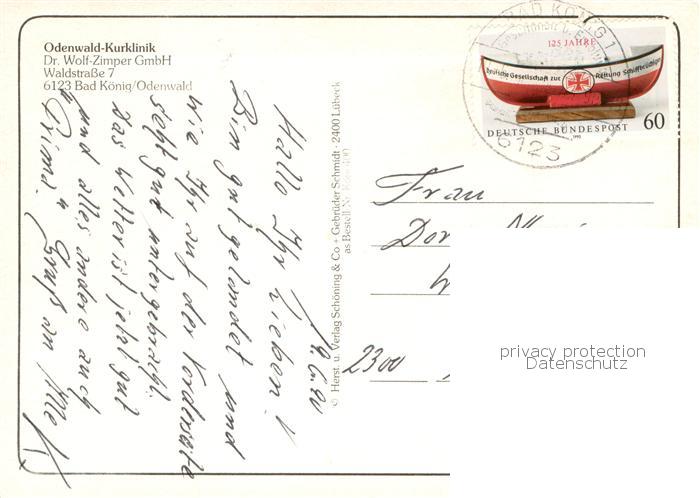 Odenwald-Kurklinik
Dr. Wolf-Zimper GmbH
Waldstraße 7
6123 Bad König/Odenwald
Hallo Ihr Lieben!
Bin gut gelandet und
wie Ihr auf der Vorderseite
seht gut untergebracht.
Das Wetter ist jetzt gut
und alles andere auch
"Prima." Gruß an Alle
© Herst. u. Verlag Schöning & Co + Gebrüder Schmidt · 2400 Lübeck
as Bestell-Nr.
BAD KÖNIG 1
6123
125 JAHRE
Deutsche Gesellschaft zur Rettung Schiffbrüchiger
DEUTSCHE BUNDESPOST 60
1990
Frau
2300
privacy protection
Datenschutz